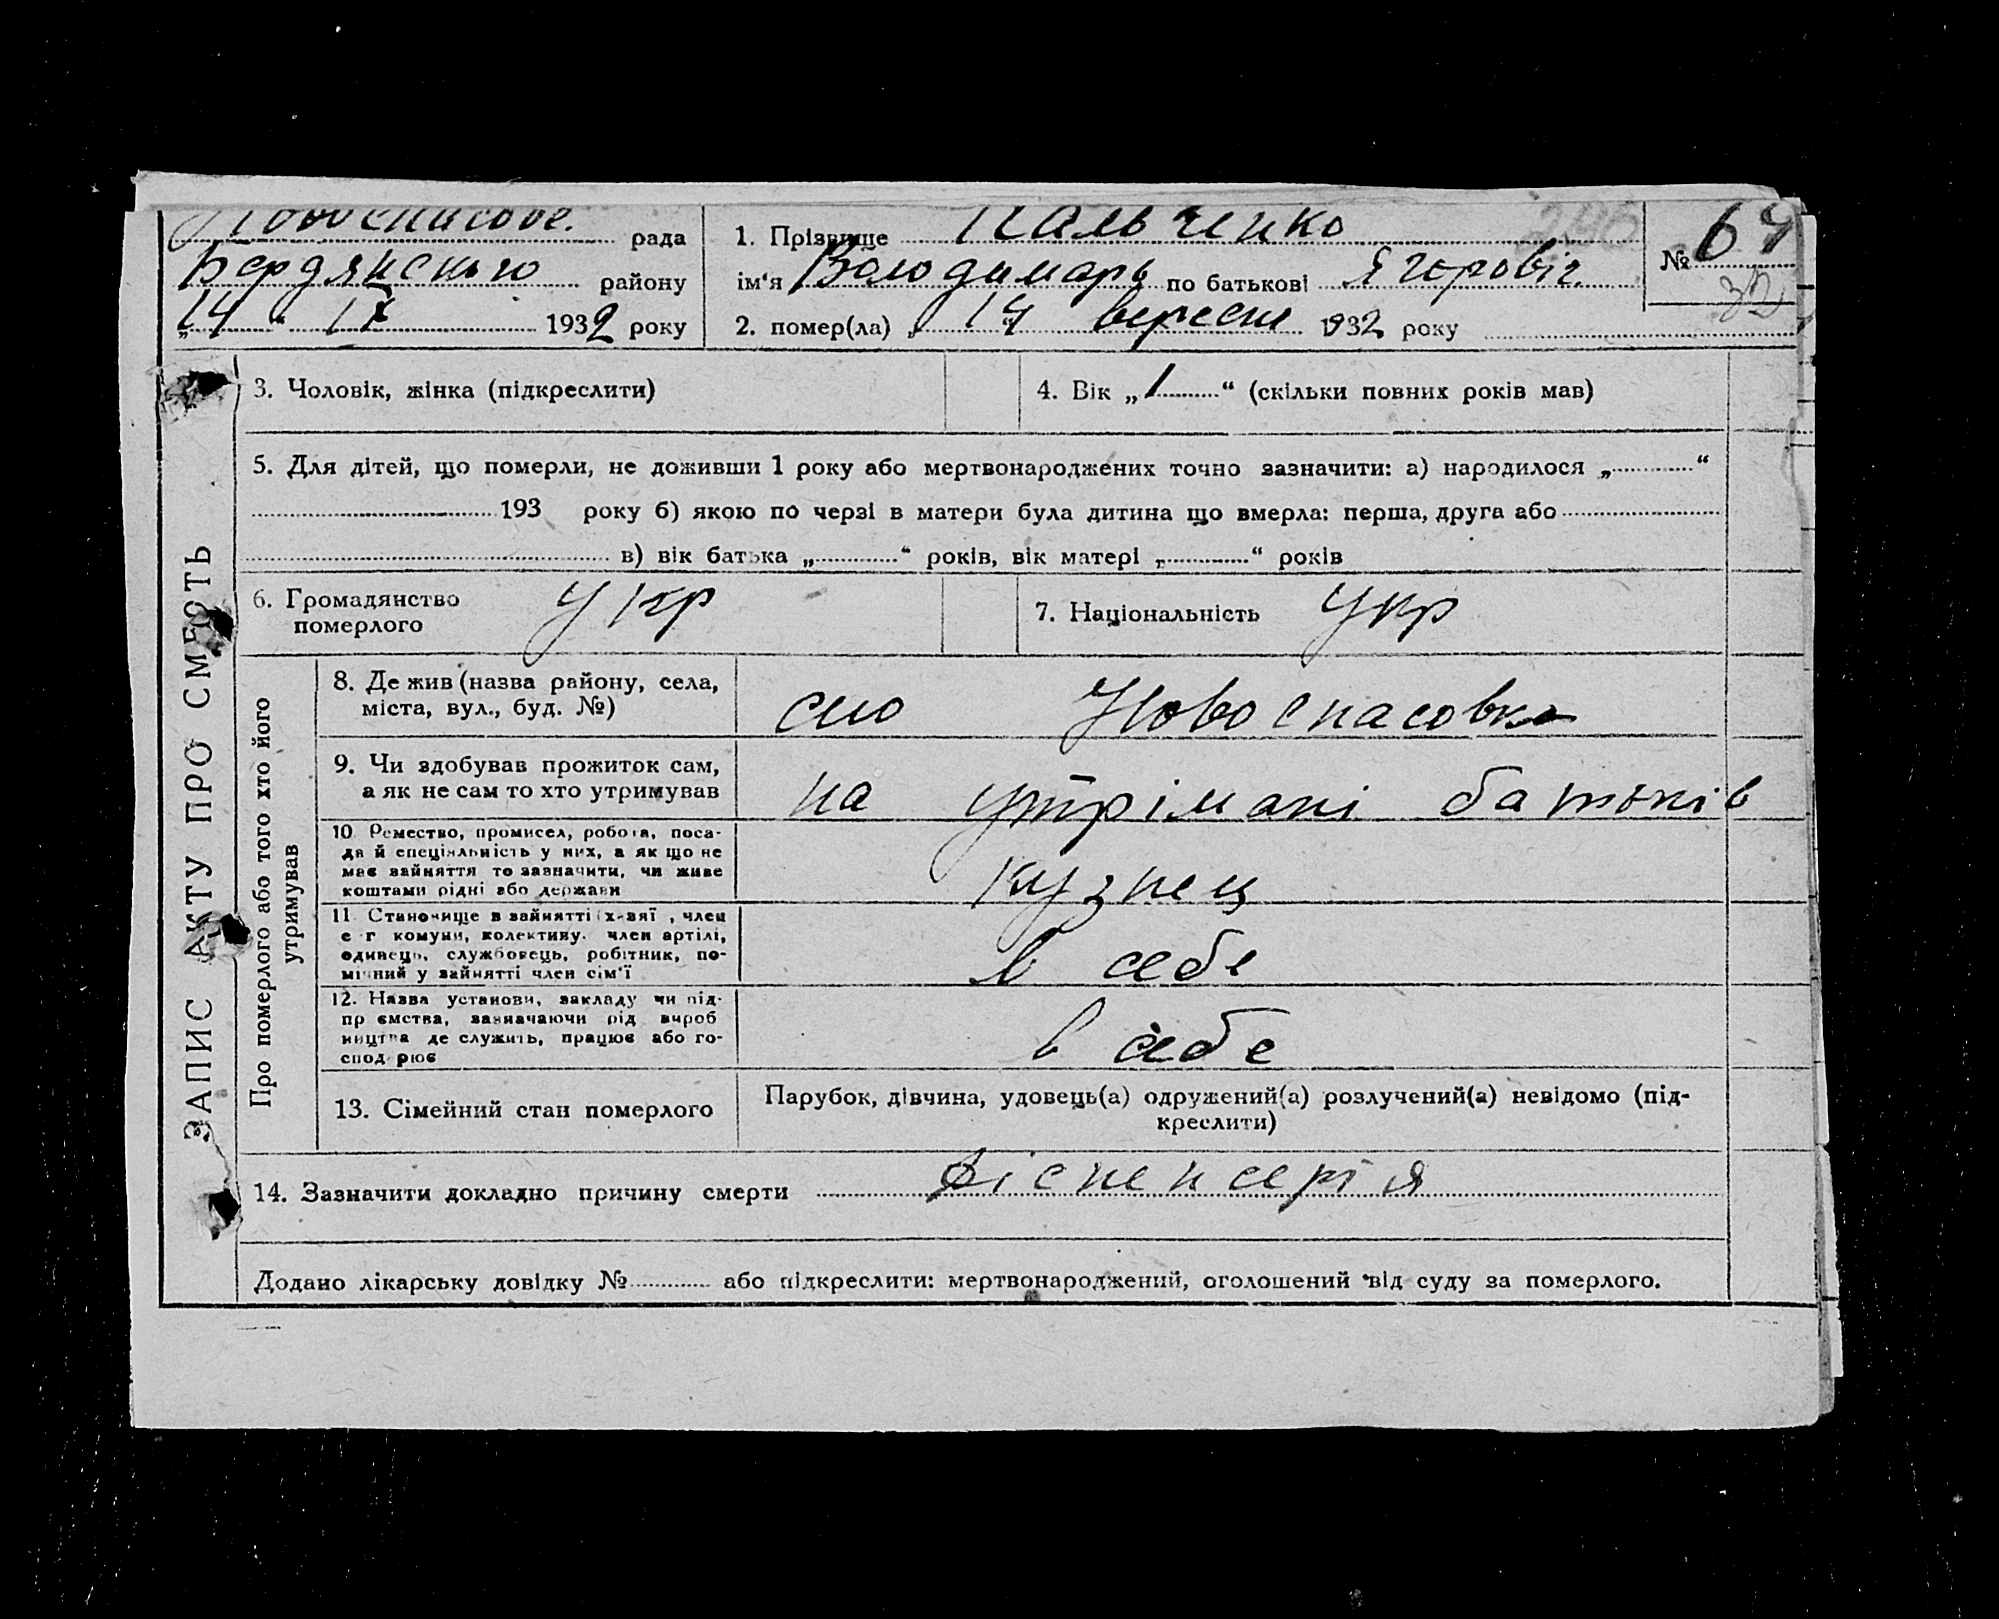 Новоспасове. рада
Бердянсько району
„14“ IX 1932 року
1. Прізвище Пальченко
ім‘я Володимарь по батькові Ягоровіч.
2. помер(ла) „14 вересня 1932 року
№ 64
ЗАПИС АКТУ ПРО СМЕРТЬ
3. Чоловік, жінка (підкреслити)
4. Вік „1“ (скільки повних років мав)
5. Для дітей, що померли, не доживши 1 року або мертвонароджених точно зазначити: а) народилося „ “
193 року б) якою по черзі в матери була дитина що вмерла: перша, друга або
в) вік батька „ “ років, вік матері „ “ років
6. Громадянство
померлого
Укр
7. Національність Укр
Про померлого або того хто його
утримував
8. Де жив (назва району, села,
міста, вул., буд. №)
село Новоспасовка
9. Чи здобував прожиток сам,
а як не сам то хто утримував
на утрімані батьків
10 Ремество, промисел, робота, поса-
да й спеціяльність у них, а як що не
має зайняття то зазначити, чи живе
коштами рідні або держави
кузнец
11 Становище в зайнятті (хазяї , член
с г комуни, колективу. член артілі,
одинець, службовець, робітник, по-
мічний у зайнятті член сім‘ї
в себе
12. Назва установи, закладу чи під-
пр ємства, зазначаючи рід вироб
ництва де служить, працює або го-
спод рює
в себе
13. Сімейний стан померлого
Парубок, дівчина, удовець(а) одружений(а) розлучений(а) невідомо (під-
креслити)
14. Зазначити докладно причину смерти діспенсерія
Додано лікарську довідку № або підкреслити: мертвонароджений, оголошений від суду за померлого.